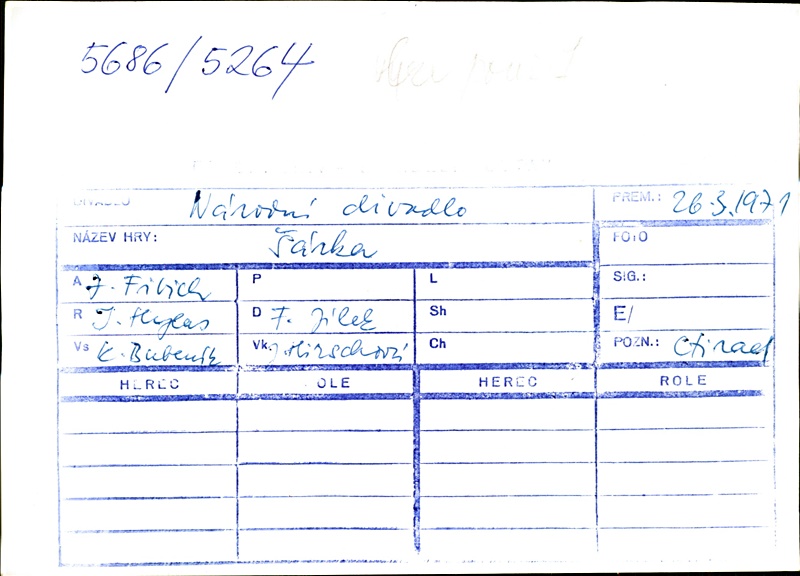 5686/5264
DIVADLO Národní divadlo PREM.: 26.3.1971
NÁZEV HRY: Šárka FOTO
A Z. Fibich P L SIG.:
R I. Hylas D F. Jílek Sh E/
Vs K. Bubeník Vk J. Hirschová Ch POZN.: Ctirad
HEREC ROLE HEREC ROLE